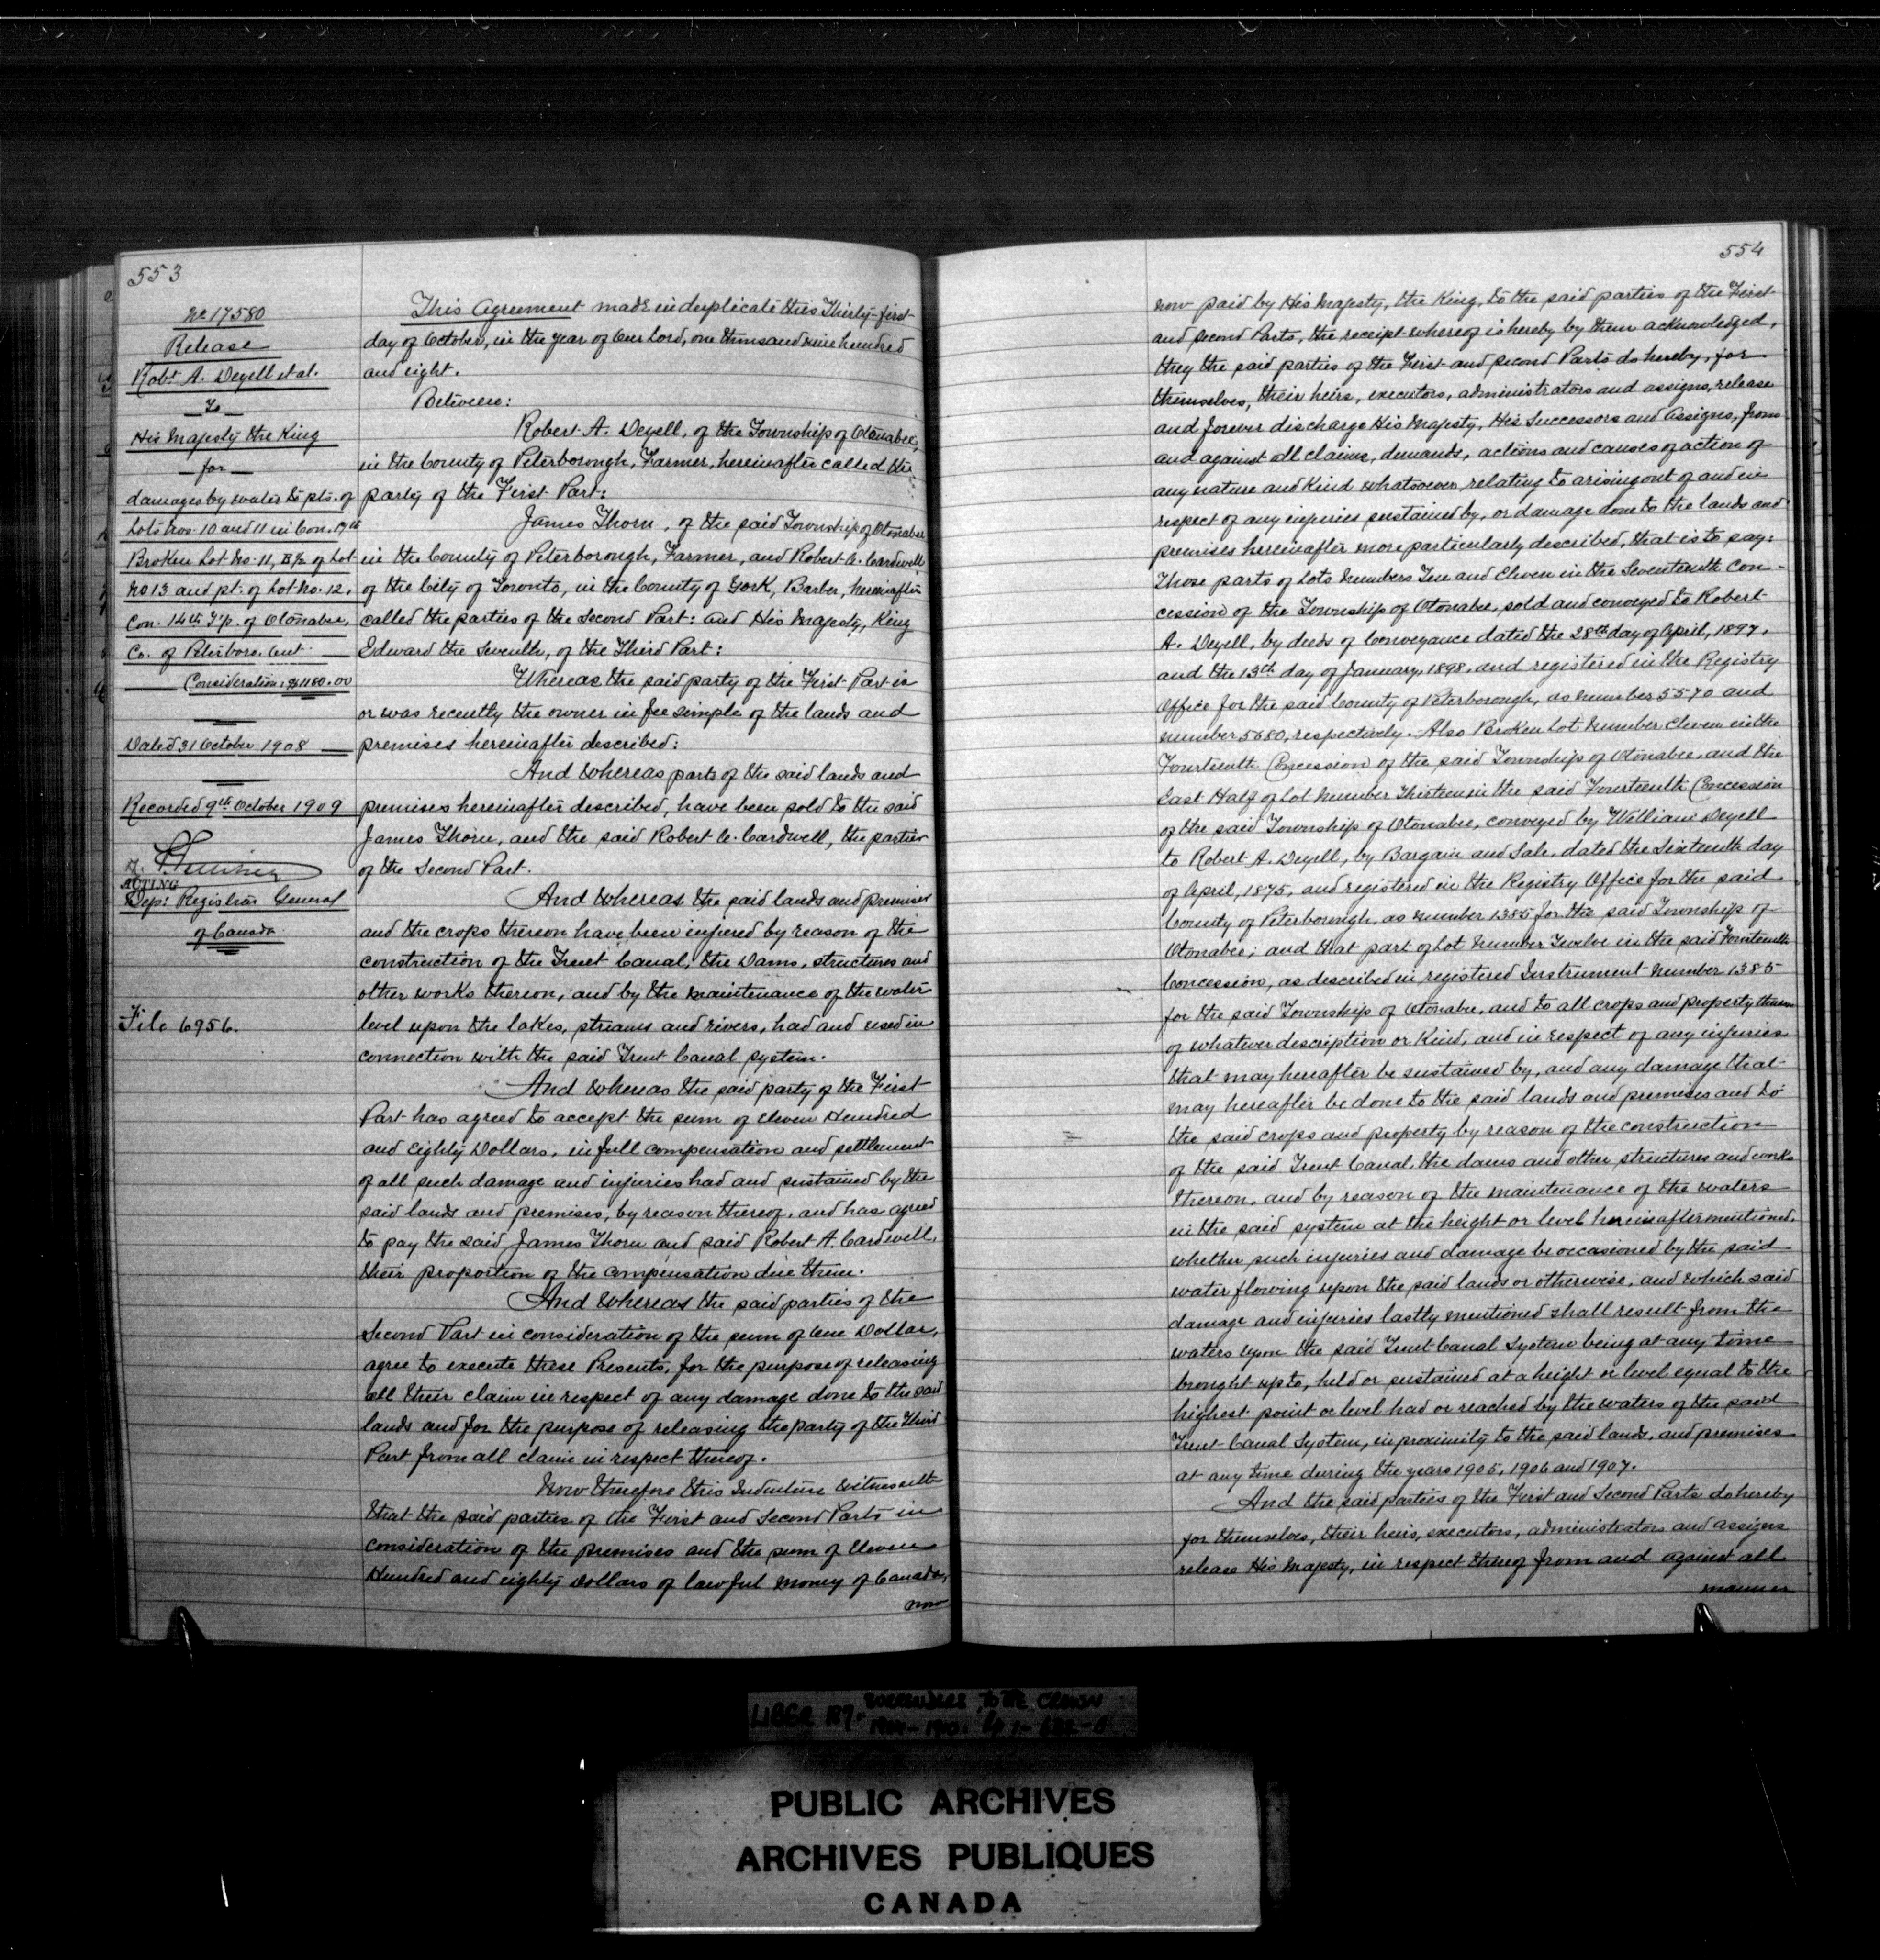 553
No 17580
Release
Robt. A. Deyell et al.
To
His Majesty the King
for
damages by water to pts. of
Lots nos. 10 and 11 in Con. 17th
Broken Lot No. 11, E½ of Lot
No 13 and pt. of Lot No. 12,
Con. 14th Tp. of Otonabee,
Co. of Peterboro. Ont.
Consideration: $1180.00
Dated 31 October 1908
Recorded 9th October 1909
ACTING
Dep: Registrar General
of Canada.
File 6956.
This Agreement made in duplicate this Thirty-first
day of October, in the year of Our Lord, one thousand nine hundred
and eight.
Between:
Robert A. Deyell, of the Township of Otonabee,
in the County of Peterborough, Farmer, hereinafter called the
party of the First Part:
James Thorn, of the said Township of Otonabee
in the County of Peterborough, Farmer, and Robert A. Cardwell
of the City of Toronto, in the County of York, Barber, hereinafter
called the parties of the Second Part: and His Majesty, King
Edward the Seventh, of the Third Part:
Whereas the said party of the First Part is
or was recently the owner in fee simple of the lands and
premises hereinafter described:
And Whereas parts of the said lands and
premises hereinafter described, have been sold to the said
James Thorn, and the said Robert A. Cardwell, the parties
of the Second Part.
And Whereas the said lands and premises
and the crops thereon have been injured by reason of the
construction of the Trent Canal, the Dams, structures and
other works thereon, and by the maintenance of the water
level upon the lakes, streams and rivers, had and used in
connection with the said Trent Canal system.
And Whereas the said party of the First
Part has agreed to accept the sum of Eleven Hundred
and Eighty Dollars, in full compensation and settlement
of all such damage and injuries had and sustained by the
said lands and premises, by reason thereof, and has agreed
to pay the said James Thorn and said Robert A. Cardwell,
their proportion of the compensation due them.
And Whereas the said parties of the
Second Part in consideration of the sum of One Dollar,
agree to execute these Presents, for the purpose of releasing
all their claim in respect of any damage done to the said
lands and for the purpose of releasing the party of the Third
Part from all claim in respect thereof.
Now therefore this Indenture Witnesseth
that the said parties of the First and Second Parts in
consideration of the premises and the sum of Eleven
Hundred and eighty Dollars of lawful money of Canada,
now
554
now paid by His Majesty, the King, to the said parties of the First
and Second Parts, the receipt whereof is hereby by them acknowledged,
they the said parties of the First and Second Parts do hereby, for
themselves, their heirs, executors, administrators and assigns, release
and forever discharge His Majesty, His Successors and Assigns, from
and against all claims, demands, actions and causes of action of
any nature and kind whatsoever relating to arising out of and in
respect of any injuries sustained by, or damage done to the lands and
premises hereinafter more particularly described, that is to say:
Those parts of Lots Numbers Ten and Eleven in the Seventeenth Con-
cession of the Township of Otonabee, sold and conveyed to Robert
A. Deyell, by deeds of Conveyance dated the 28th day of April, 1897,
and the 13th day of January, 1898, and registered in the Registry
Office for the said County of Peterborough, as number 5570 and
number 5680, respectively. Also Broken Lot Number Eleven in the
Fourteenth Concession of the said Township of Otonabee, and the
East Half of Lot Number Thirteen in the said Fourteenth Concession
of the said Township of Otonabee, conveyed by William Deyell
to Robert A. Deyell, by Bargain and Sale, dated the Sixteenth day
of April, 1875, and registered in the Registry Office for the said
County of Peterborough, as Number 1385 for the said Township of
Otonabee; and that part of Lot Number Twelve in the said Fourteenth
Concession, as described in registered Instrument Number 1385
for the said Township of Otonabee, and to all crops and property thereon
of whatever description or Kind, and in respect of any injuries
that may hereafter be sustained by, and any damage that
may hereafter be done to the said lands and premises and to
the said crops and property by reason of the construction
of the said Trent Canal, the dams and other structures and works
thereon, and by reason of the maintenance of the waters
in the said system at the height or level hereinafter mentioned,
whether such injuries and damage be occasioned by the said
water flowing upon the said lands or otherwise, and which said
damage and injuries lastly mentioned shall result from the
waters upon the said Trent Canal System being at any time
brought up to, held or sustained at a height or level equal to the
highest point or level had or reached by the waters of the said
Trent Canal System, in proximity to the said lands, and premises
at any time during the years 1905, 1906 and 1907.
And the said parties of the First and Second Parts do hereby
for themselves, their heirs, executors, administrators and assigns
release His Majesty, in respect thereof from and against all
manner
LIBER 187. SURRENDERS TO THE CROWN
PUBLIC ARCHIVES
ARCHIVES PUBLIQUES
CANADA